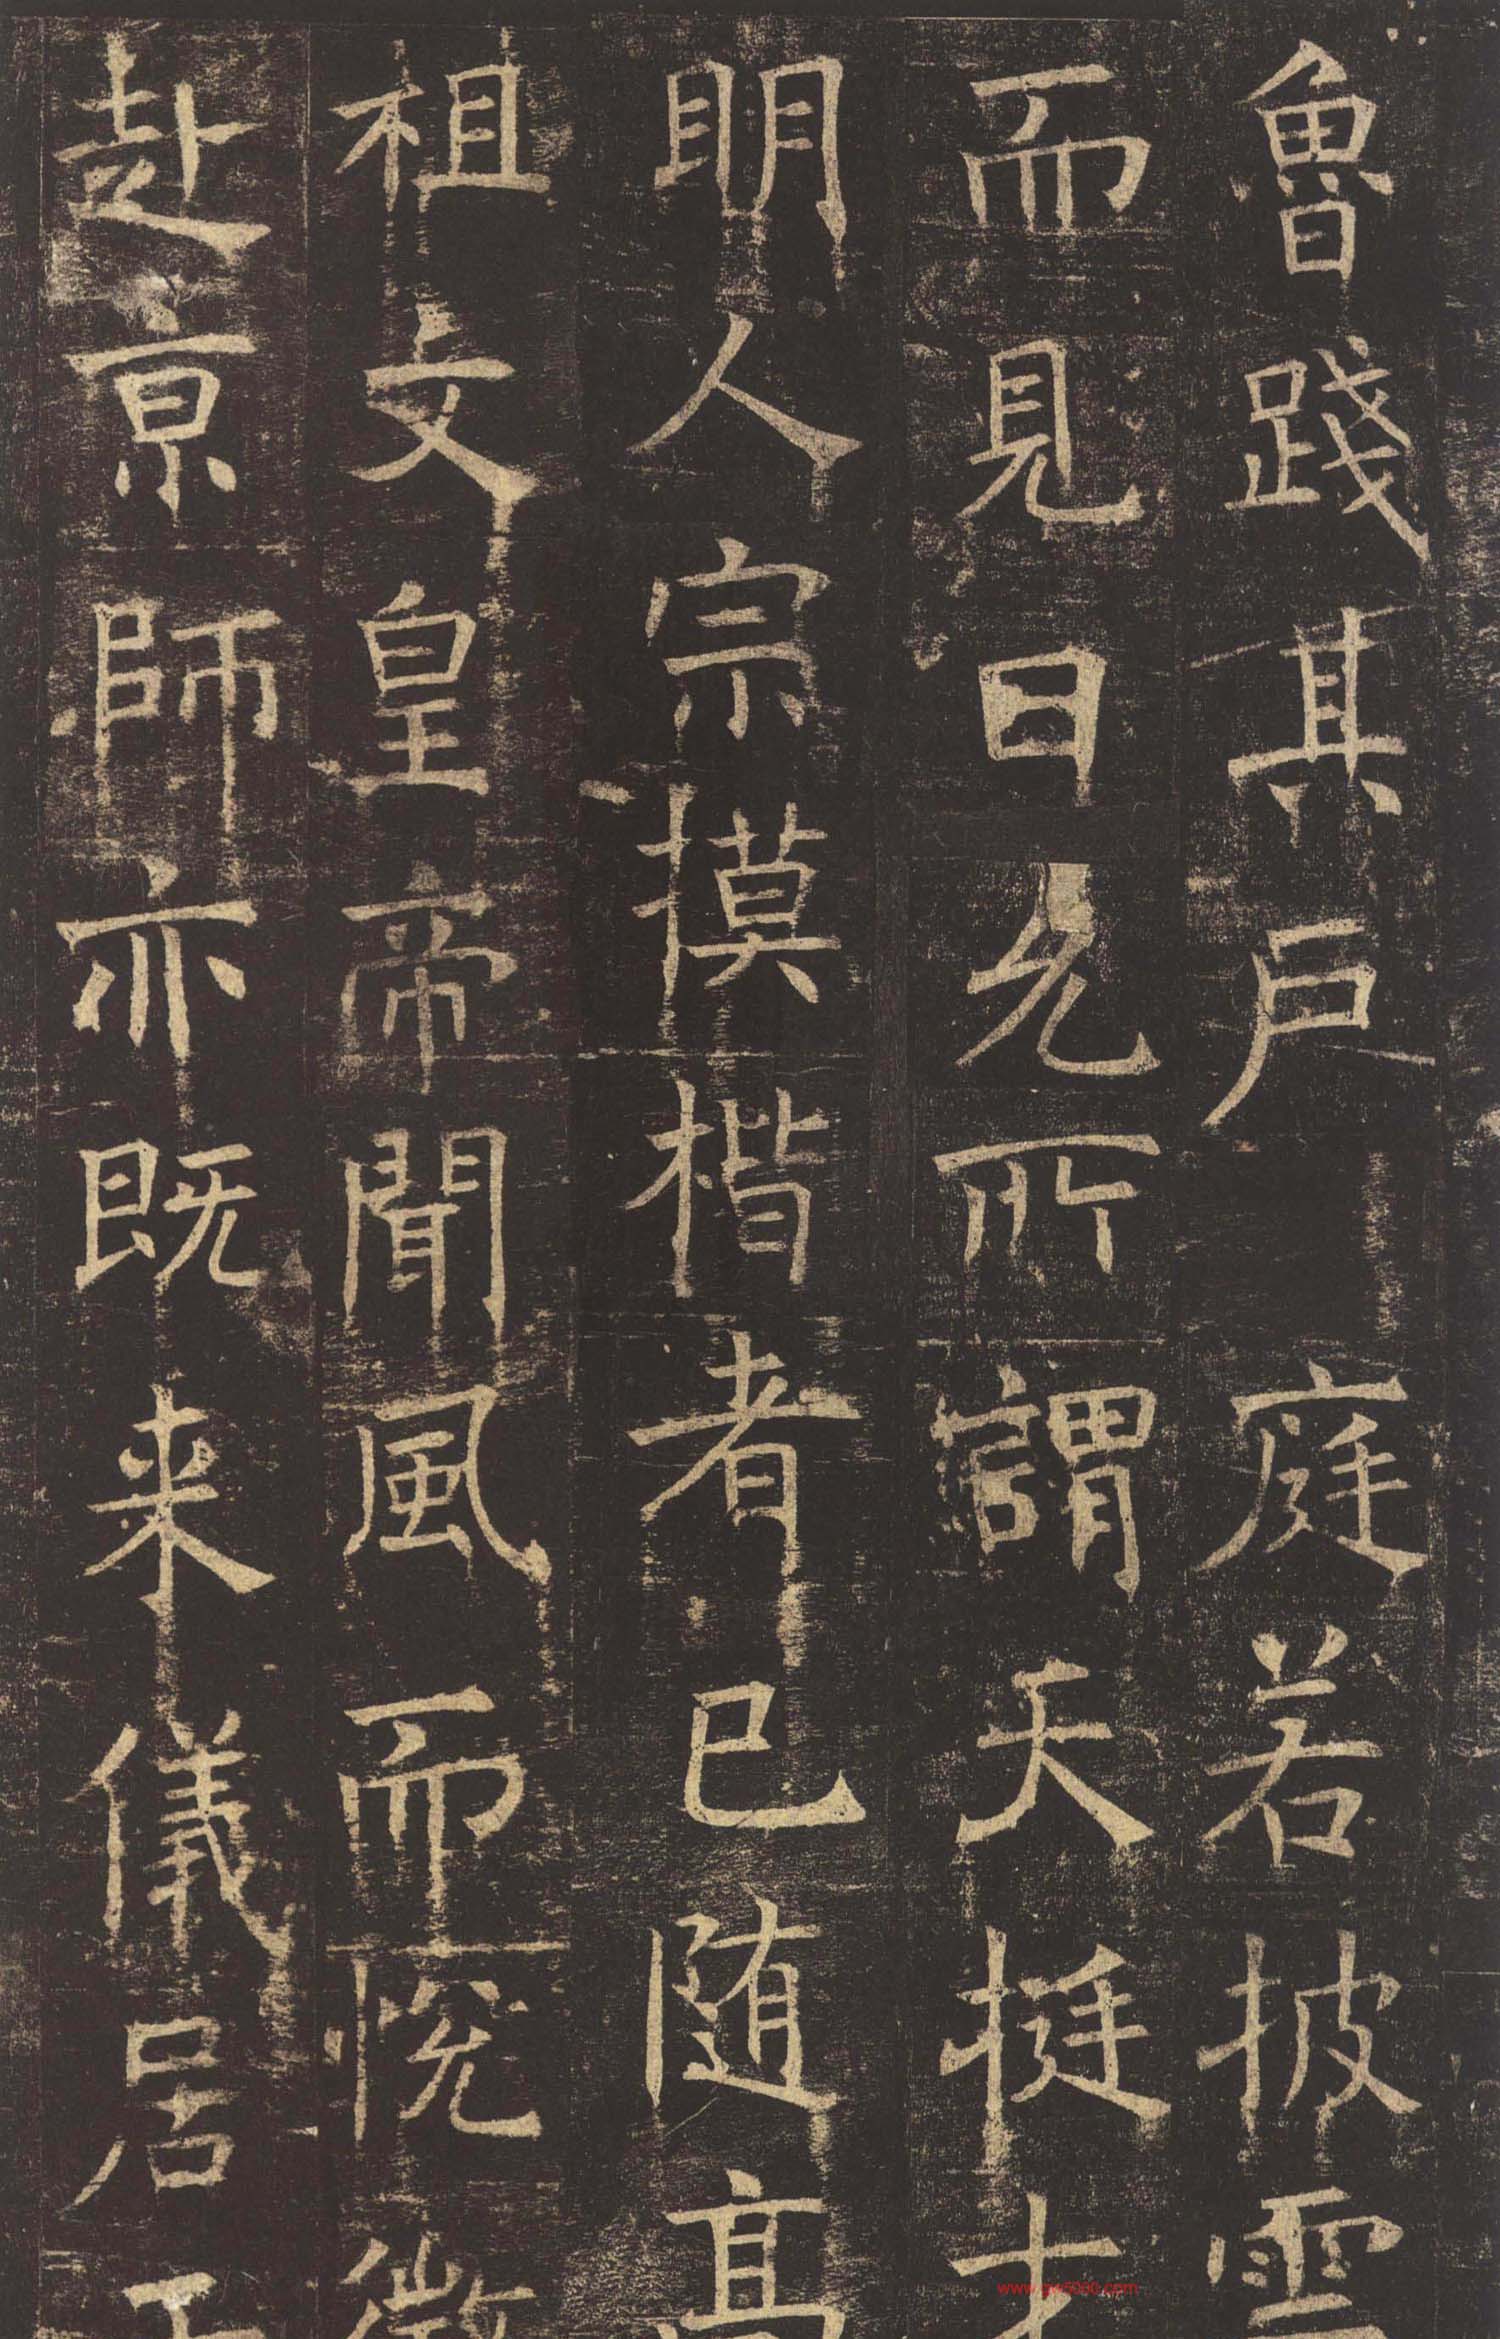 魯踐其戶庭若披雲
而見日凡所謂天挺才
明人宗摸楷者已随高
祖文皇帝聞風而悅徵
赴京師亦既来儀居
www.gw5000.com